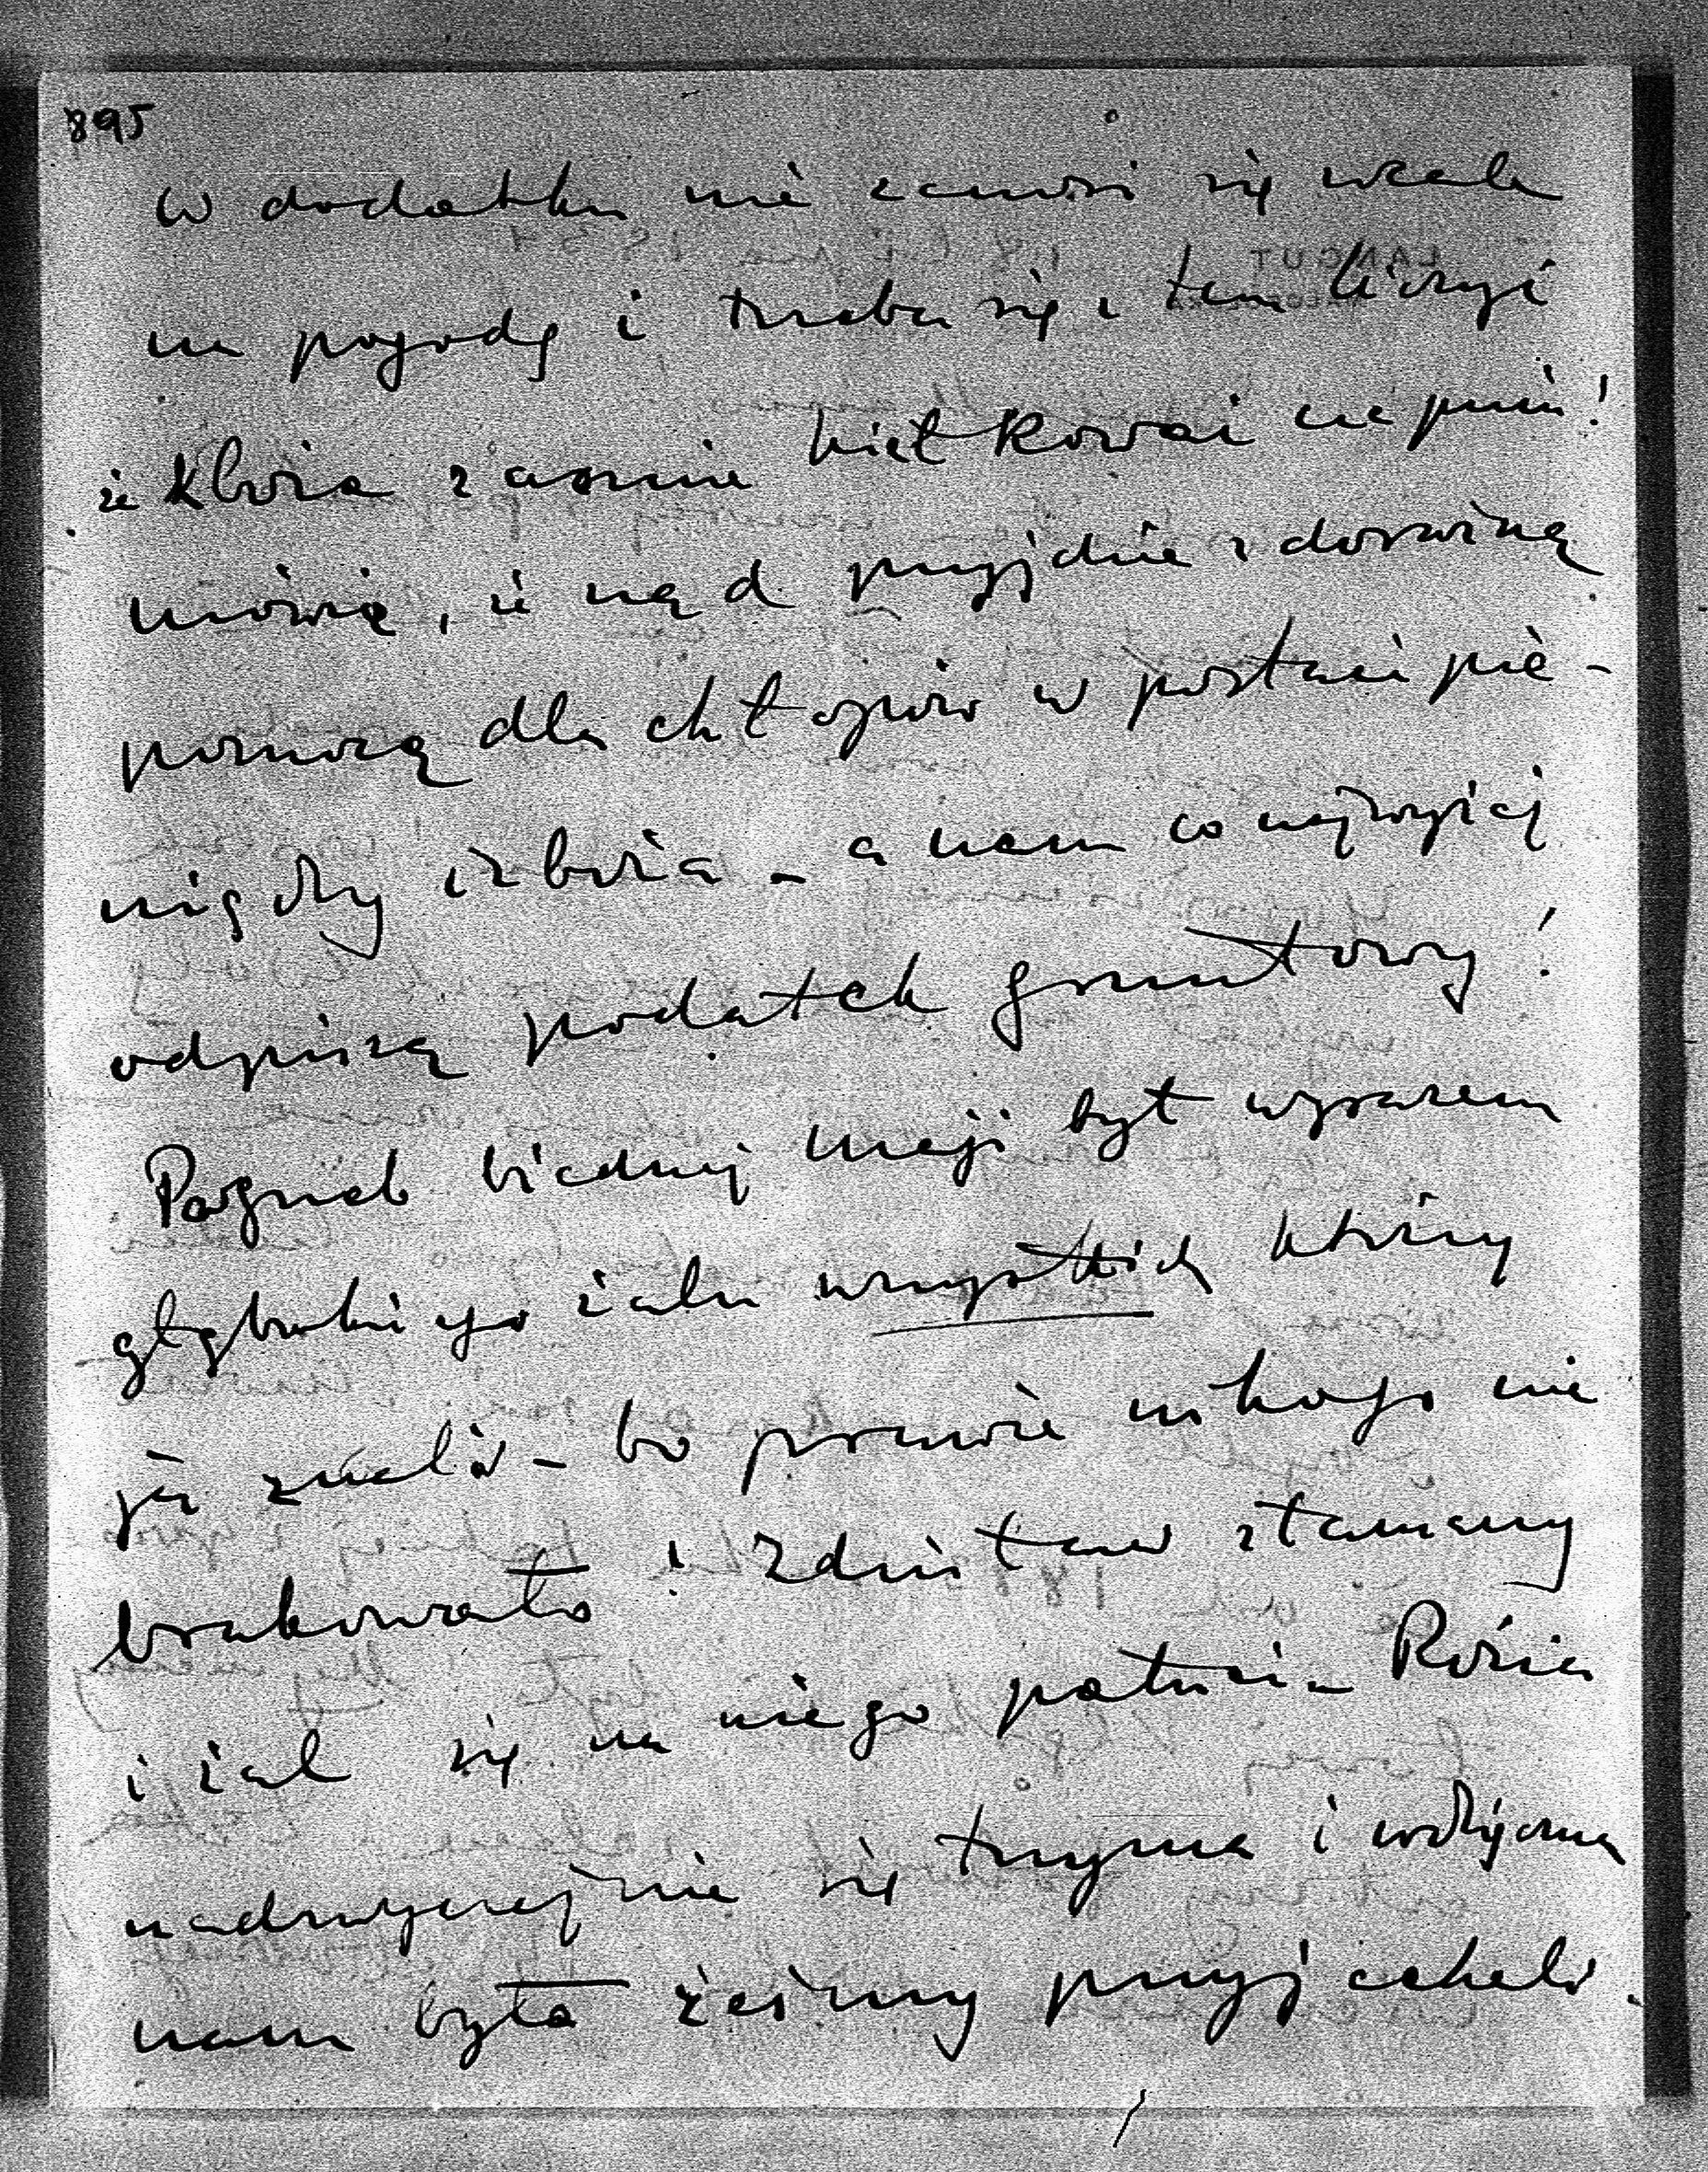 895
W dodatku nie zanosi się wcale
na pogodę i trzeba się z tem liczyć
że zboże zacznie kiełkować na pniu!
mówią, że rząd przyjdzie z doraźną
pomocą dla chłopów w postaci pie-
niędzy i zboża – a nam co najwyżej
odpiszą podatek gruntowy!
Pogrzeb biednej Maji był wyrazem
głębokiego żalu wszystkich którzy
ją znali – bo prawie nikogo nie
brakowało! Zdzisław złamany
i żal się na niego patrzeć – Rózia
nadzwyczajnie się trzyma i wdzięczną
nam była żeśmy przyjechali.